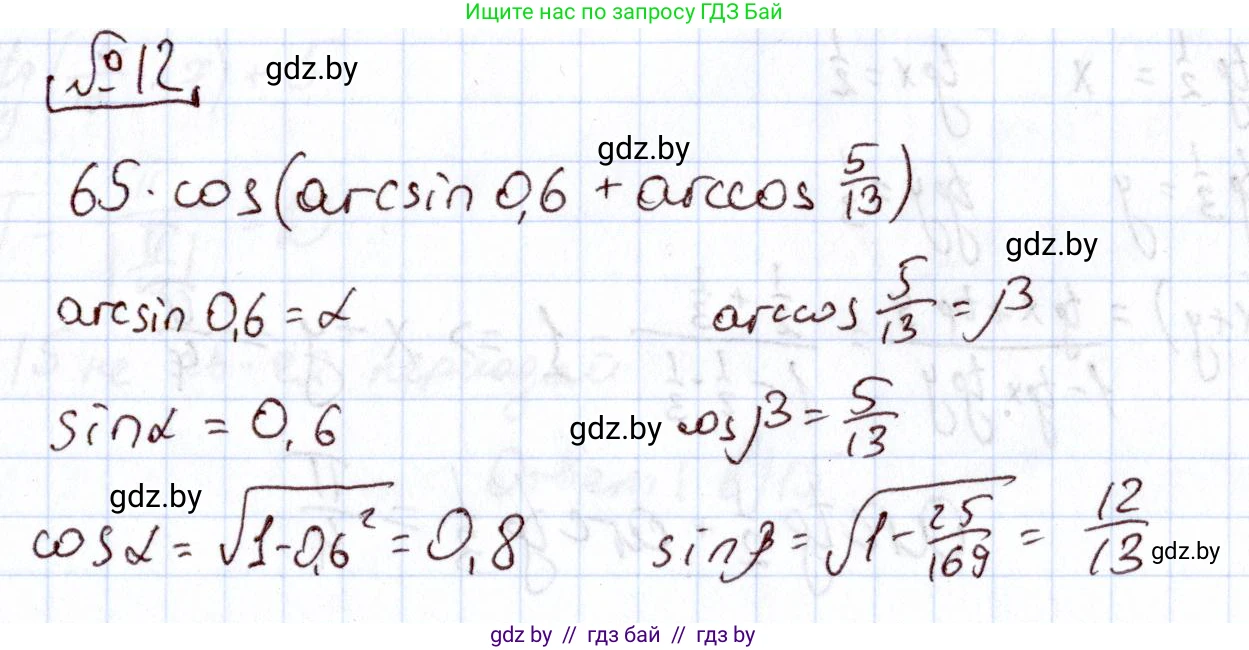 Ищите нас по запросу ГДЗ Бай
№ 12 gdz.by
gdz.by
65 · cos(arcsin 0,6 + arccos 5/13)
gdz.by
arcsin 0,6 = α arccos 5/13 = β
sin α = 0,6 gdz.by cos β = 5/13
gdz.by
cos α = √(1-0,6²) = 0,8 sin β = √(1 - 25/169) = 12/13 gdz.by
gdz.by // гдз бай // гдз by